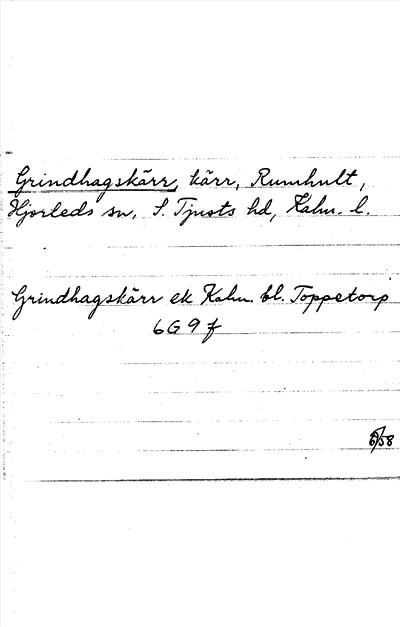 Grindhagskärr, kärr, Rumhult,
Hjorteds sn, S. Tjusts hd, Kalm. l.
Grindhagskärr ek Kalm. bl. Toppetorp
6G9f